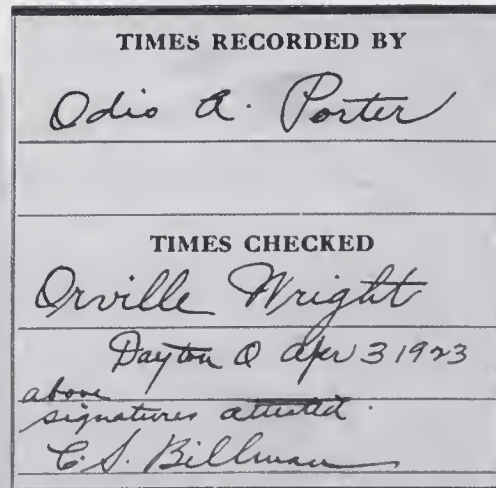 TIMES RECORDED BY
Odis A. Porter
TIMES CHECKED
Orville Wright
Dayton O Apr 3 1923
above
signatures attested.
C. S. Billman